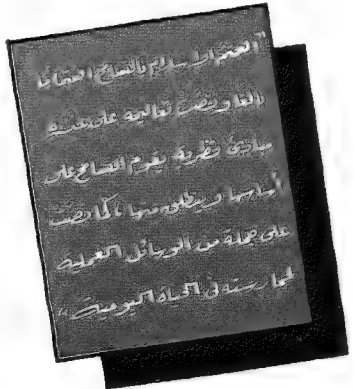 "اهتم الإسلام بالتسامح اهتمامًا
بالغا ونصت تعاليمه على عدة
مبادئ نظرية يقوم التسامح على
أساسها وينطلق منها، كما نصت
على جملة من الوسائل العملية
لممارسته في الحياة اليومية"